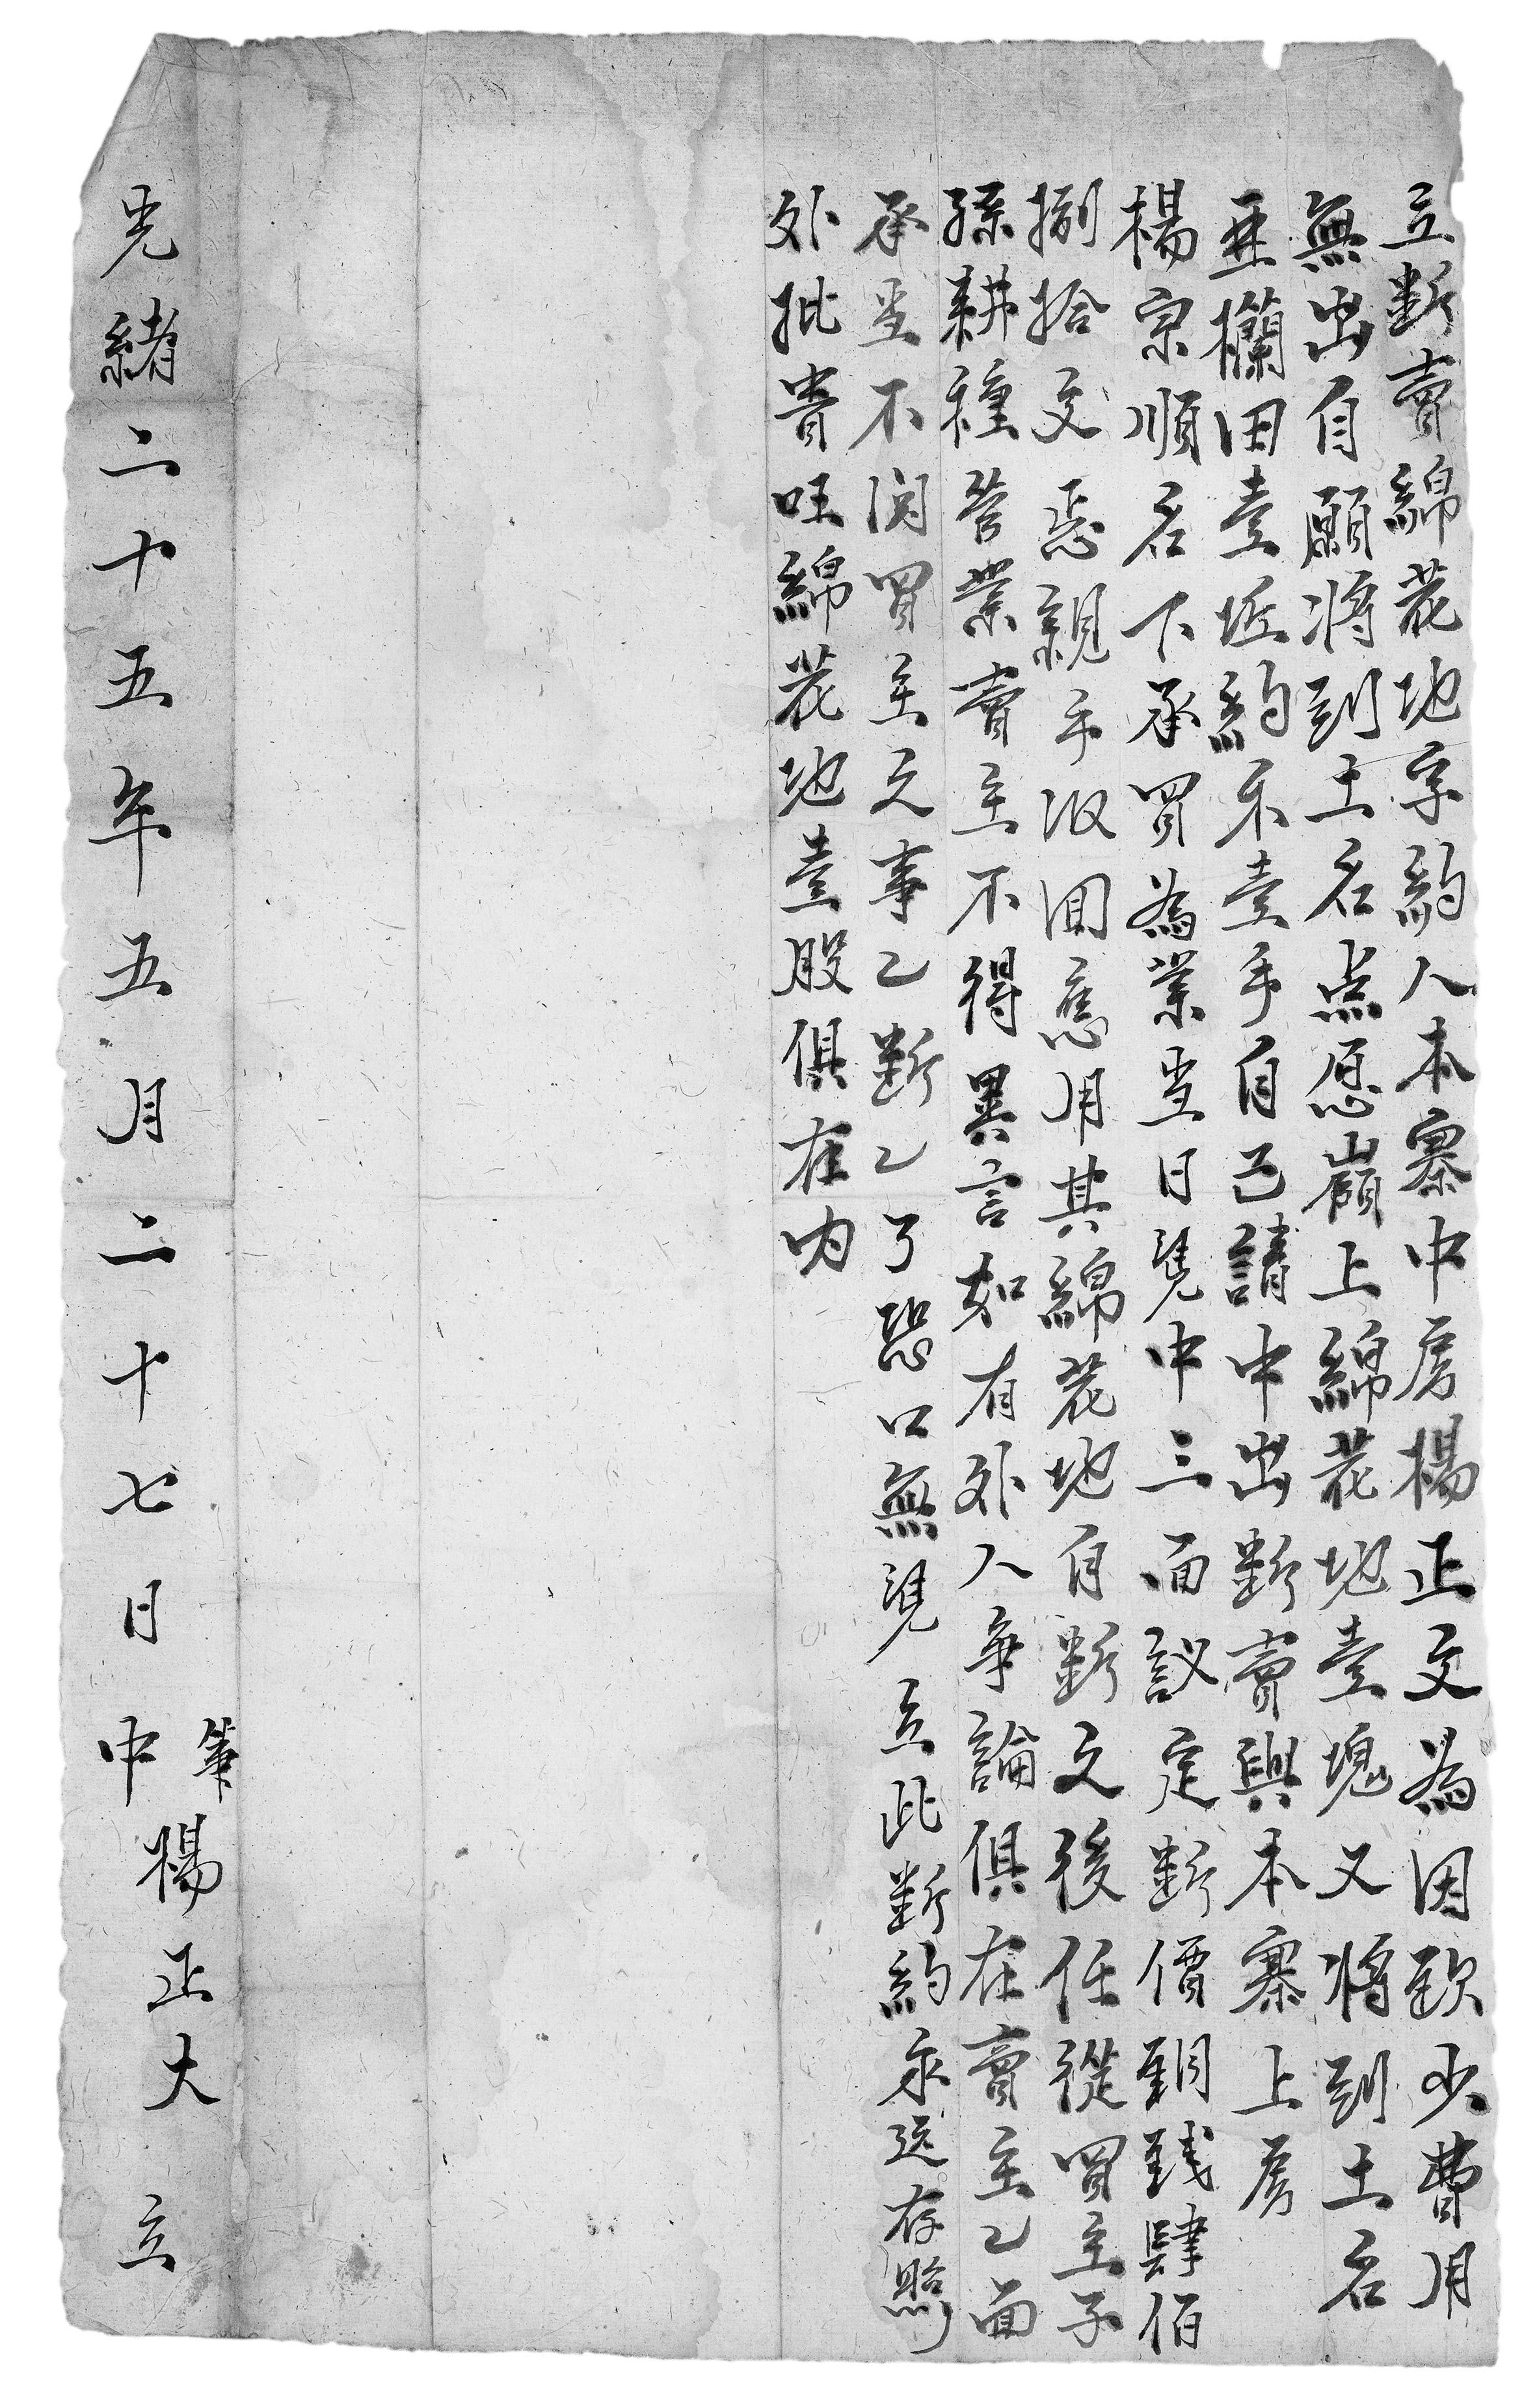 立斷賣綿花地字約人本寨中房楊正文為因缺少費用
無出自願將到土名点愿嶺上綿花地壹塊又將到土名
亜欄田壹坵約禾壹手自己請中出断賣與本寨上房
楊宗順名下承買為業当日凴中三面議定断價銅錢肆佰
捌拾文 親手収囬應用其綿花地自断之後任從買主子
孫耕種管業賣主不得異言如有外人争論俱在賣主乙面
承当不関買主之事乙断乙了恐口無凴立此断約永远存照
外批 綿花地壹股俱在内
光緒二十五年五月二十七日
筆
中
楊正大 立